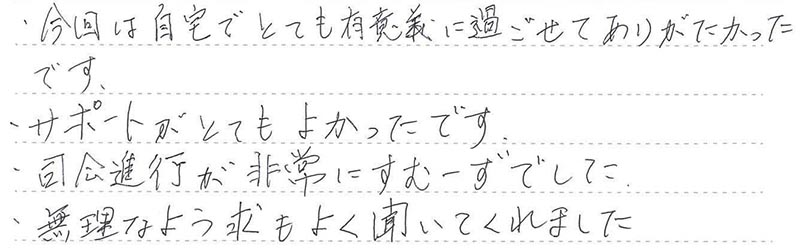 ・今回は自宅でとても有意義に過ごせてありがたかった
です、
・サポートがとてもよかったです.
・司会進行が非常にすむーずでした.
・無理なよう求もよく聞いてくれました